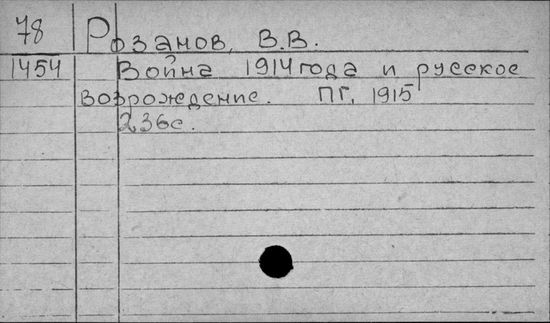 78 Розанов, В.В.
1454 Война 1914 года и русское
возрождение. ПГ, 1915
236с.